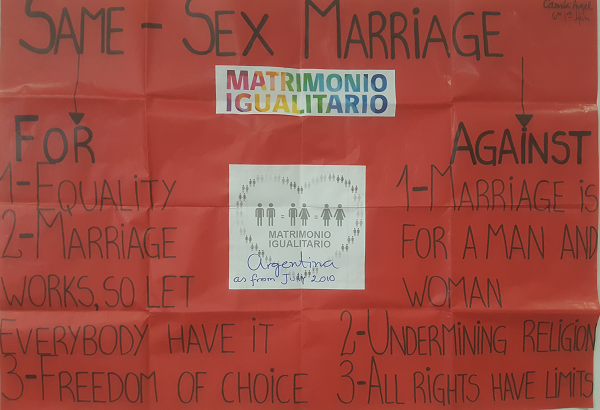 SAME - SEX MARRIAGE
MATRIMONIO
IGUALITARIO
FOR
1-EQUALITY
2-MARRIAGE
WORKS, SO LET
EVERYBODY HAVE IT
3-FREEDOM OF CHOICE
= =
MATRIMONIO
IGUALITARIO
Argentina
as from July 2010
AGAINST
1-MARRIAGE IS
FOR A MAN AND
WOMAN
2-UNDERMINING RELIGION
3-ALL RIGHTS HAVE LIMITS